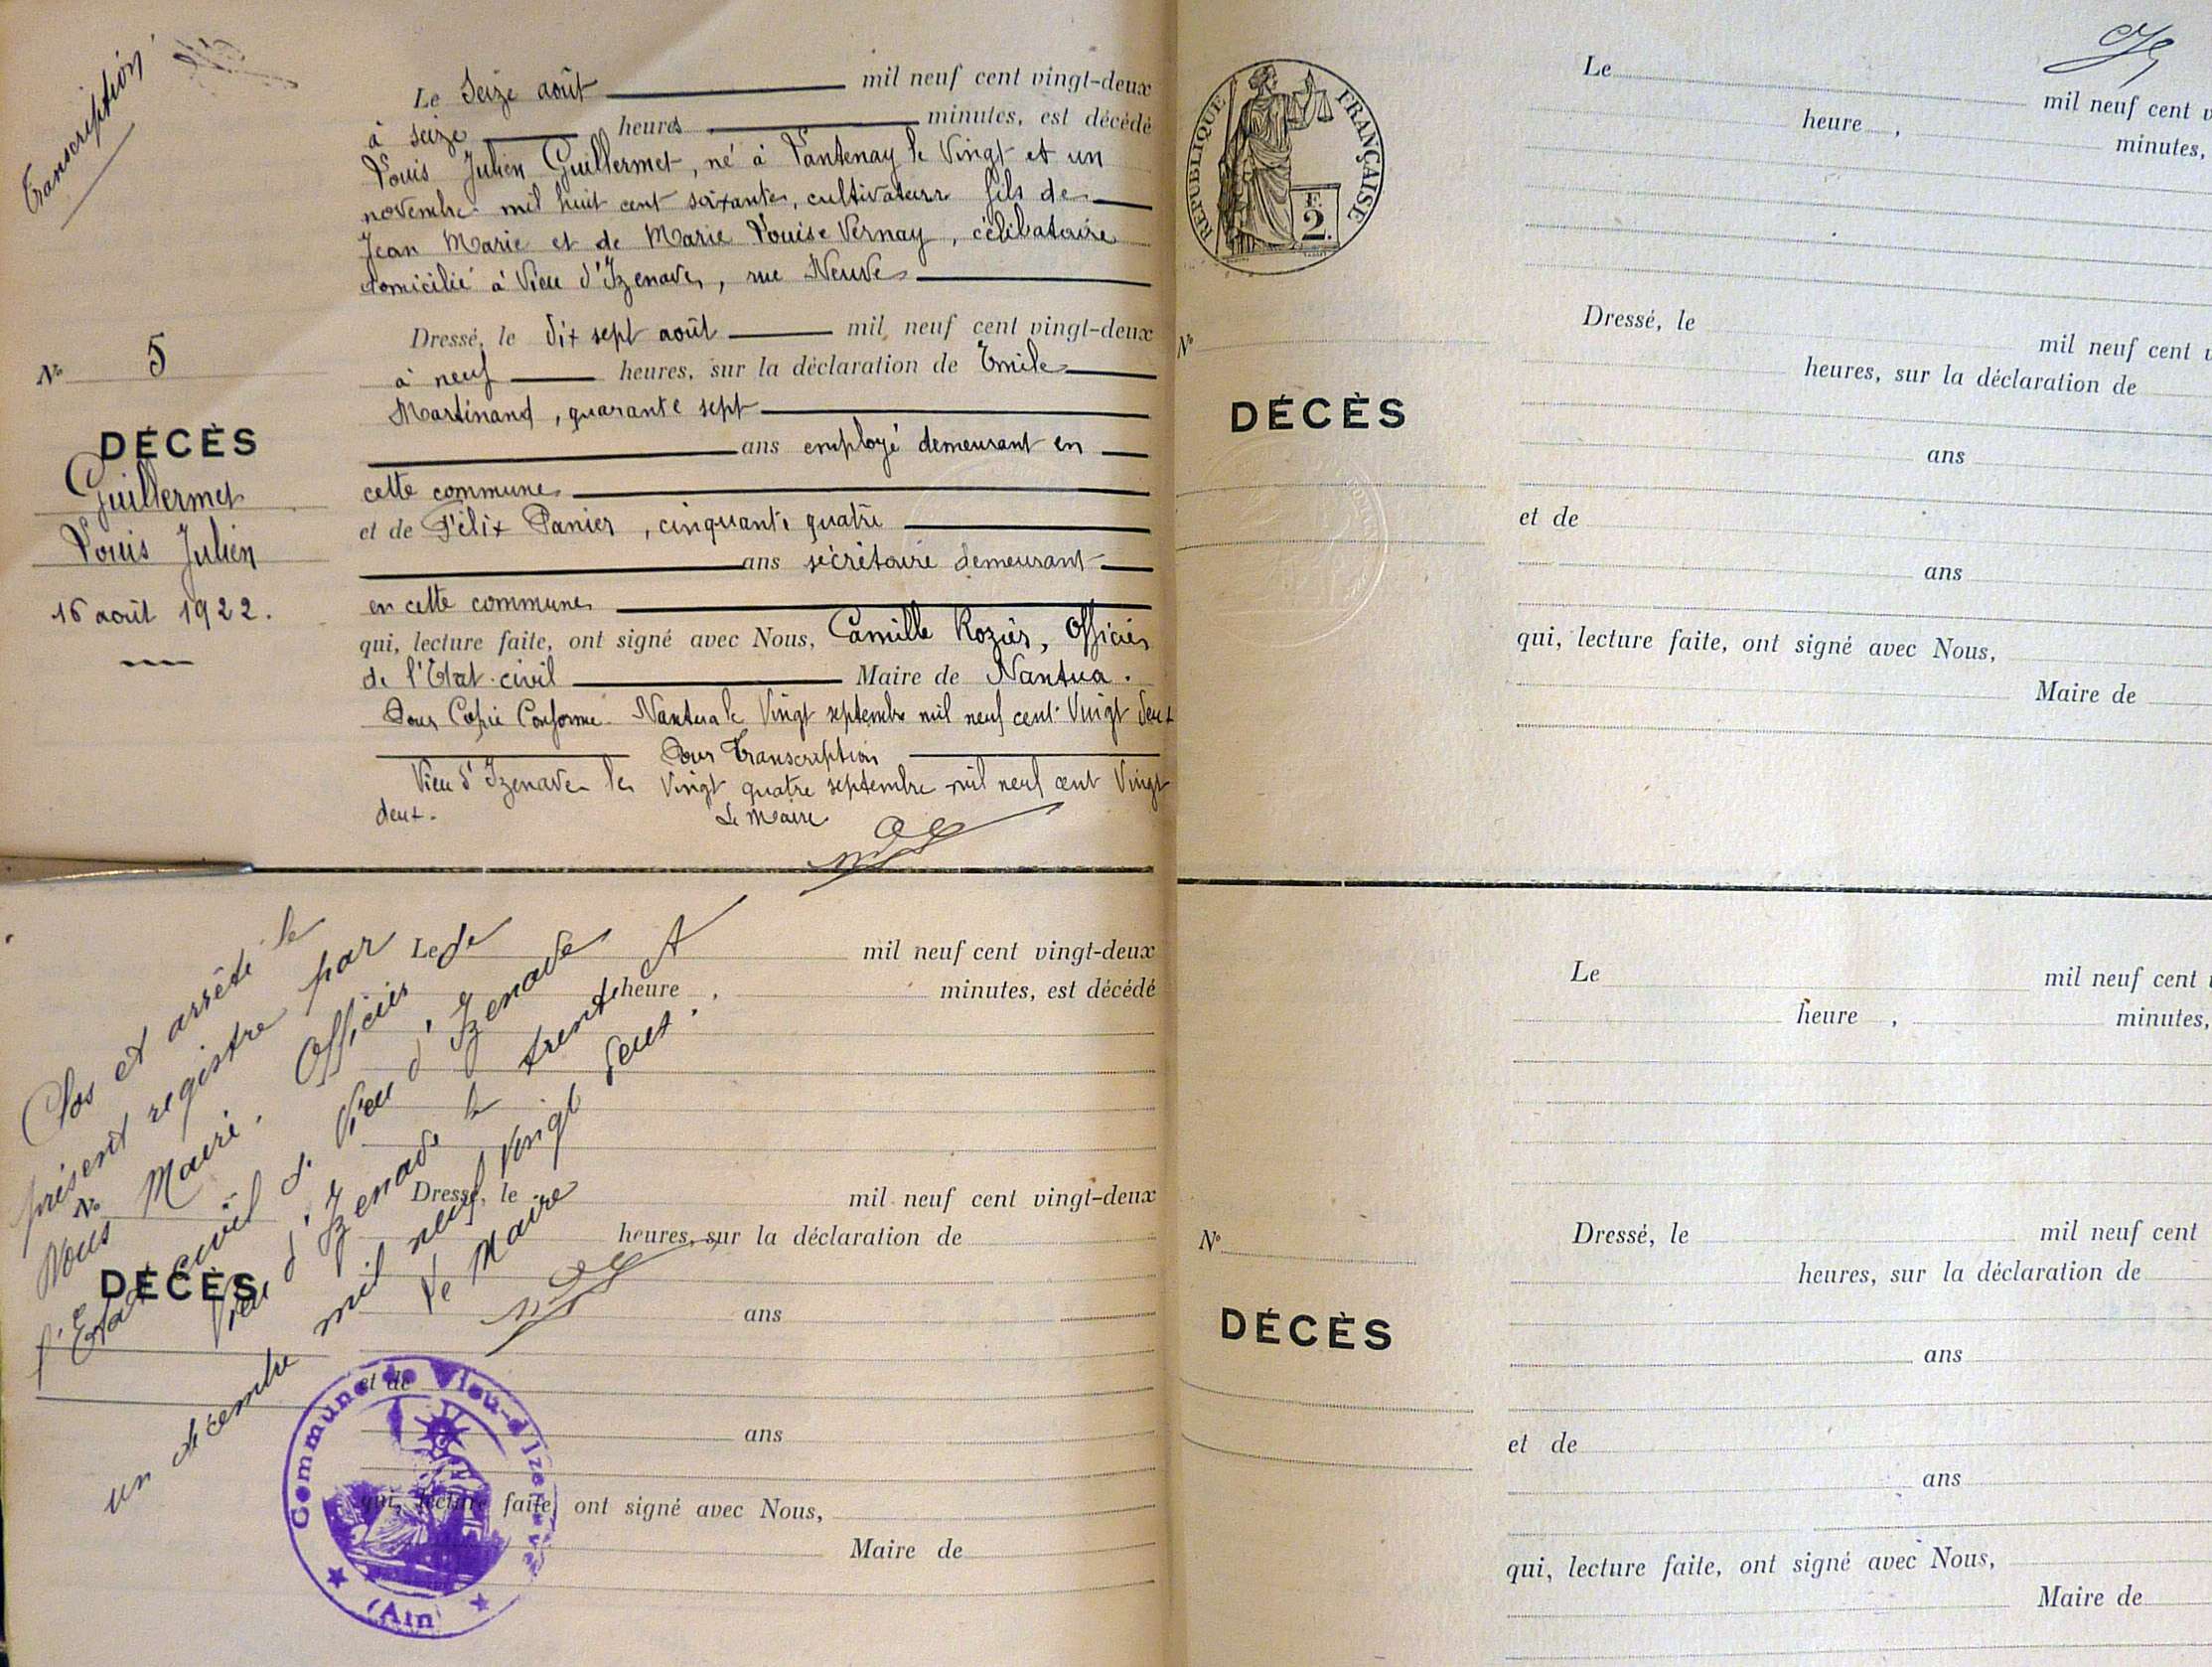 Transcription
Le Seize août mil neuf cent vingt-deux
à seize heures minutes, est décédé
Louis Julien Guillermet, né à Lantenay le Vingt et un
novembre mil huit cent soixante, cultivateur fils de
Jean Marie et de Marie Louise Vernay, célibataire
domicilié à Vieu d'Izenave, rue Neuve
Dressé, le dix sept août mil neuf cent vingt-deux
à neuf heures, sur la déclaration de Emile
Martinand, quarante sept
ans employé demeurant en
cette commune
et de Félix Panier, cinquante quatre
ans sécrétaire demeurant
en cette commune
qui, lecture faite, ont signé avec Nous, Camille Rozier, Officier
de l'Etat-civil Maire de Nantua.
Pour Copie Conforme. Nantua le Vingt septembre mil neuf cent Vingt deux
Pour Transcription
Vieu d'Izenave le Vingt quatre septembre mil neuf cent Vingt
deux.
Le Maire
N° 5
DÉCÈS
Guillermet
Louis Julien
16 août 1922.
Le mil neuf cent vingt-deux
heure , minutes, est décédé
Dressé, le mil neuf cent vingt-deux
heures, sur la déclaration de
ans
et de
ans
qui, lecture faite, ont signé avec Nous,
Maire de
N°
DÉCÈS
Clos et arrêté le
présent registre par
Nous Maire, Officier de
l'Etat civil de Vieu d'Izenave
Vieu d'Izenave le trente et
un décembre mil neuf Vingt deux.
Le Maire
Commune de Vieu-d'Izenave
(Ain)
RÉPUBLIQUE FRANÇAISE
F.
2.
Le mil neuf cent
heure , minutes,
N°
DÉCÈS
Dressé, le mil neuf cent
heures, sur la déclaration de
ans
et de
ans
qui, lecture faite, ont signé avec Nous,
Maire de
Le mil neuf cent
heure , minutes,
N°
DÉCÈS
Dressé, le mil neuf cent
heures, sur la déclaration de
ans
et de
ans
qui, lecture faite, ont signé avec Nous,
Maire de